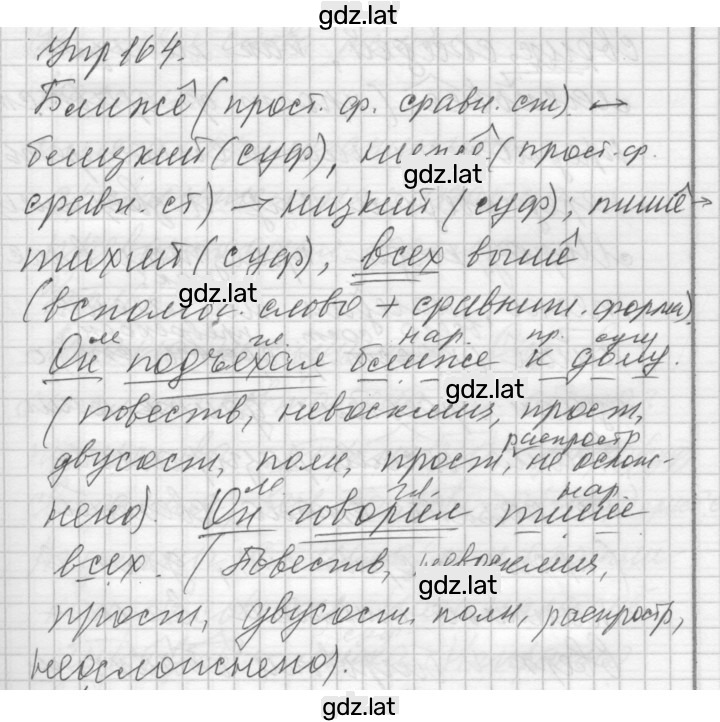 gdz.lat
Упр 164.
Ближе (прост. ф. сравн. ст) →
близкий (суф), (прост. ф.
gdz.lat
сравн. ст) → низкий (суф); тише →
тихий (суф), всех выше
gdz.lat
(вспомог. слово + сравнит. форма)
м. гл. нар. пр. сущ
Он подъехал ближе к дому.
gdz.lat
(повеств, невосклиц, прост,
распростр
двусост, полн, прост, не ослож-
м. гл. нар.
нено). Он говорил тише
всех. (Повеств, невосклиц,
gdz.lat
прост, двусост. полн, распростр,
неосложнено).
gdz.lat